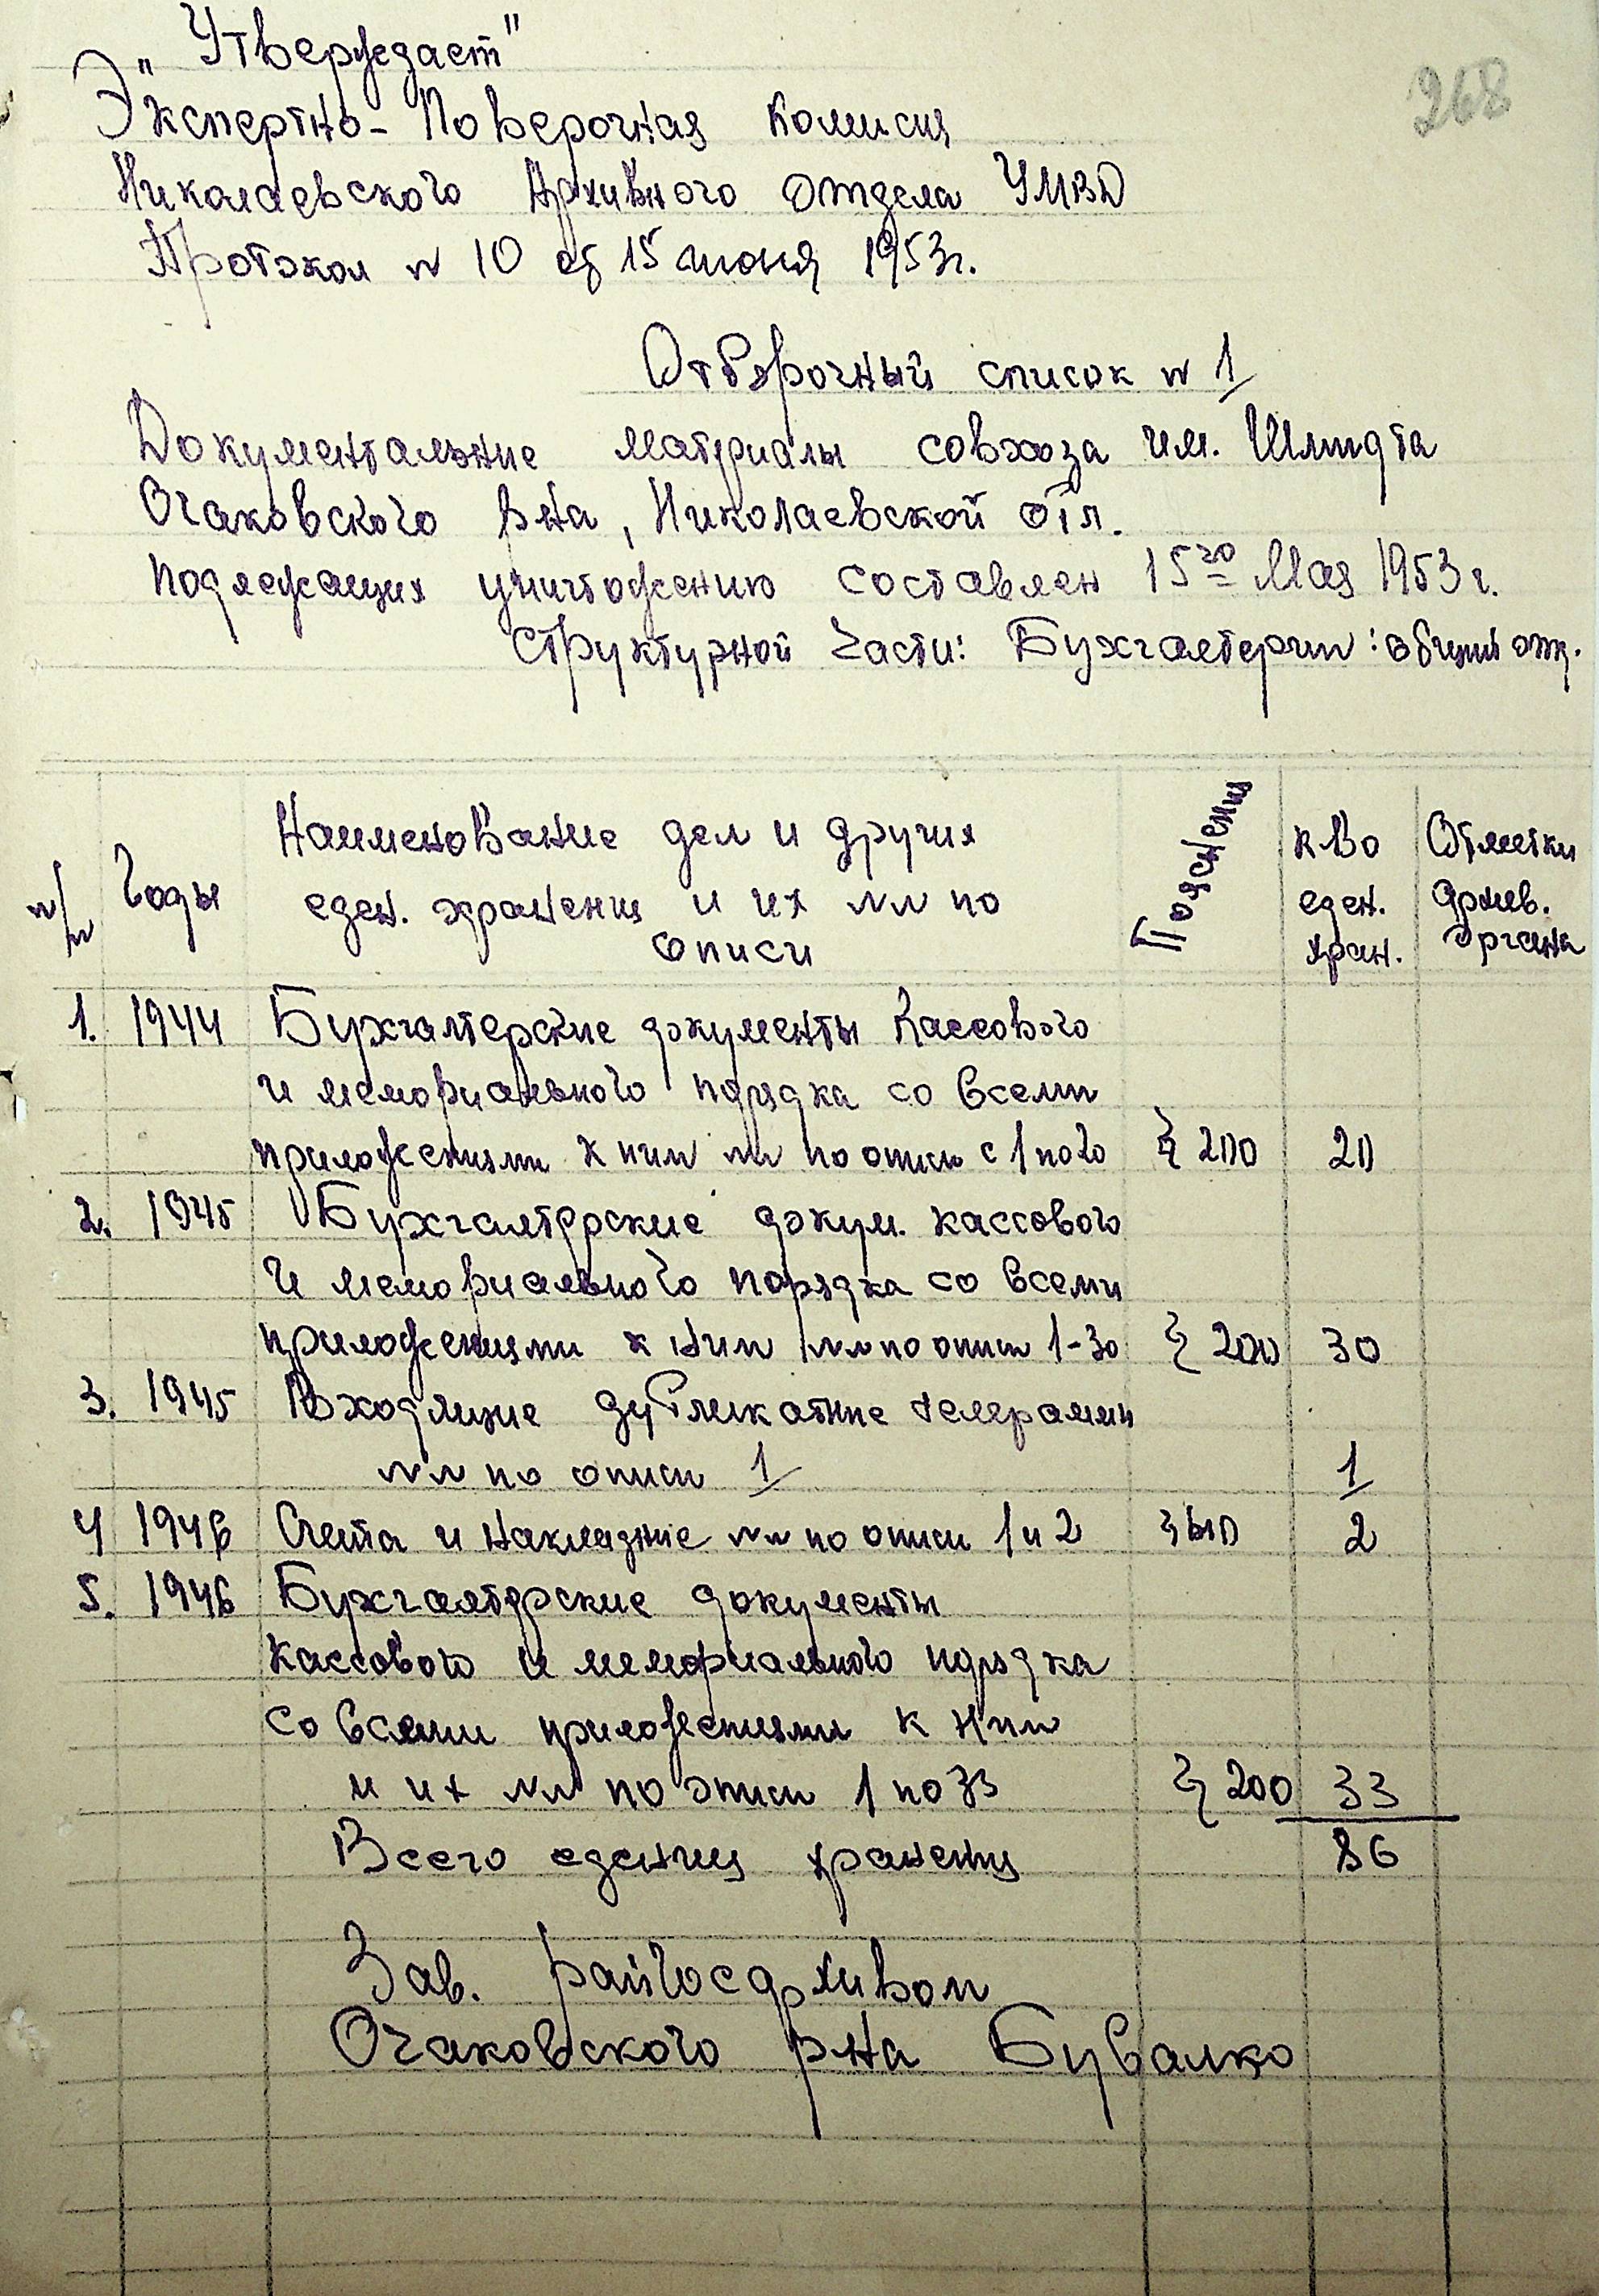 „Утверждаст"
268
Экспертно-Поверочная Комисия
Николаевского Архивного отдела УМВД
Протокол № 10 от 15 июня 1953г.
Отборочный список № 1
Документальние материалы совхоза им. Шмидта
Очаковского р-на, Николаевской обл.
подлежащих уничтожению составлен 15го Мая 1953 г.
Структурной части: Бухгалтерии: общий отд.
№/№ Годы Наименование дел и других еден. хранения и их №№ по описи § к-во еден. хран. Отметки Архив. органа
1. 1944 Бухгалтерские документы Кассового
и мемориального порядка со всеми
приложениями к ним №№ по описи с 1 по 20 § 200 20
2. 1945 Бухгалтерские докум. кассового
и мемориального порядка со всеми
приложениями к ним №№ по описи 1-30 § 200 30
3. 1945 Входящие дубликатние телерамми
№№ по описи 1 1
4 1946 Счета и накладние №№ по описи 1 и 2 2
5. 1946 Бухгалтерские документы
кассового и мемориального порядка
со всеми приложениями к ним
и их №№ по описи 1 по 33 § 200 33
Всего едениц хранения 86
Зав. райгосархивом
Очаковского р-на Бувалко